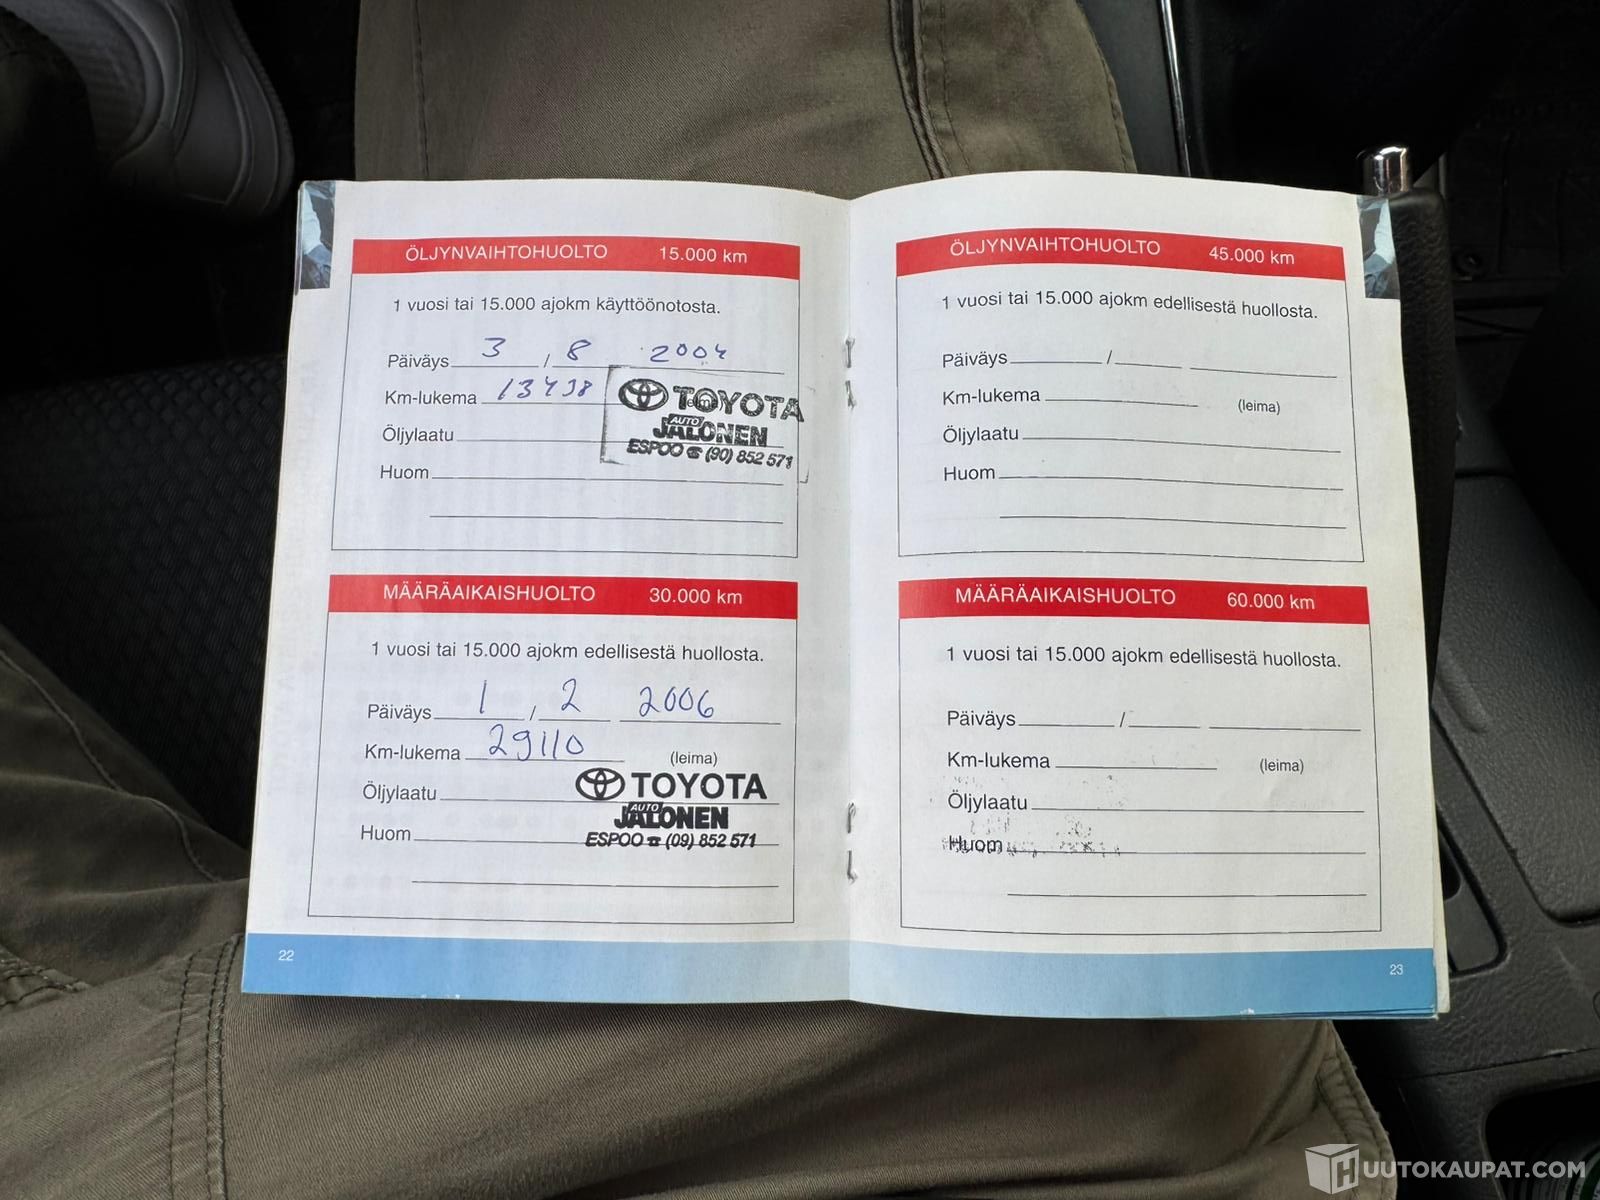 ÖLJYNVAIHTOHUOLTO 15.000 km
1 vuosi tai 15.000 ajokm käyttöönotosta.
Päiväys 3 / 8 2004
Km-lukema
TOYOTA
AUTO
JALONEN
ESPOO ☎ (90) 852 571
Öljylaatu
Huom
MÄÄRÄAIKAISHUOLTO 30.000 km
1 vuosi tai 15.000 ajokm edellisestä huollosta.
Päiväys 1 / 2 2006
Km-lukema 29110 (leima)
TOYOTA
AUTO
JALONEN
ESPOO ☎ (09) 852 571
Öljylaatu
Huom
22
ÖLJYNVAIHTOHUOLTO 45.000 km
1 vuosi tai 15.000 ajokm edellisestä huollosta.
Päiväys /
Km-lukema (leima)
Öljylaatu
Huom
MÄÄRÄAIKAISHUOLTO 60.000 km
1 vuosi tai 15.000 ajokm edellisestä huollosta.
Päiväys /
Km-lukema (leima)
Öljylaatu
Huom
23
HUUTOKAUPAT.COM